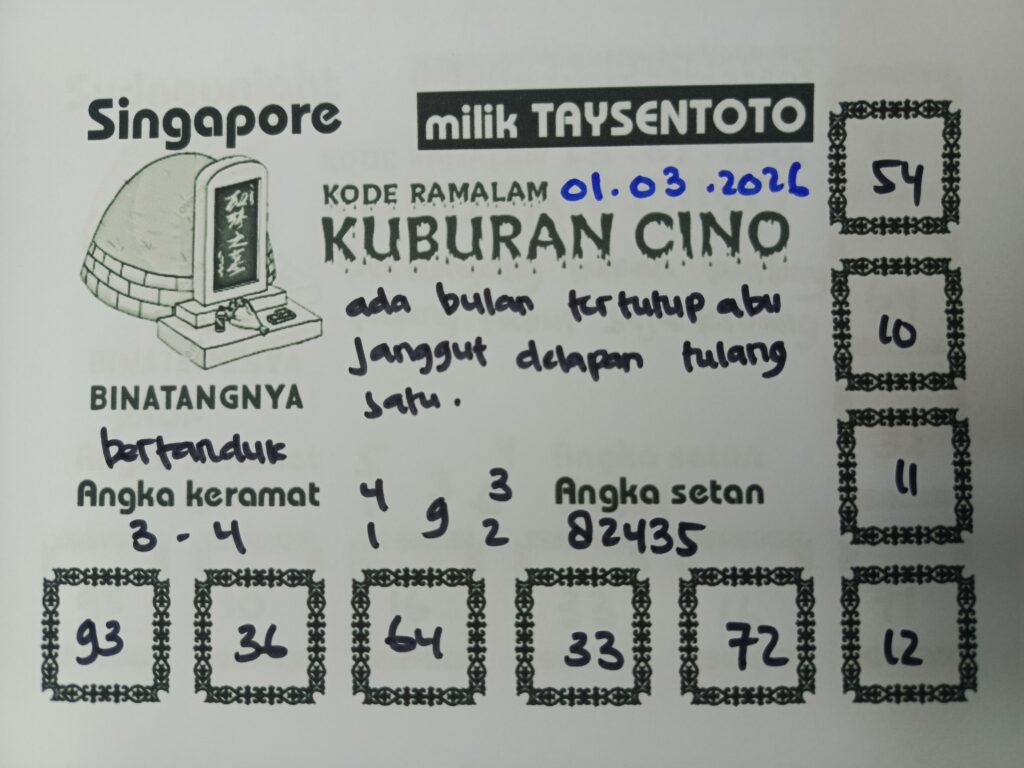 Singapore
milik TAYSENTOTO
KODE RAMALAM 01.03.2026
KUBURAN CINO
ada bulan tertutup abu
Janggut delapan tulang
satu.
BINATANGNYA
bertanduk
Angka keramat
3 - 4
4 3
9
1 2
Angka setan
82435
54
10
11
93 36 64 33 72 12